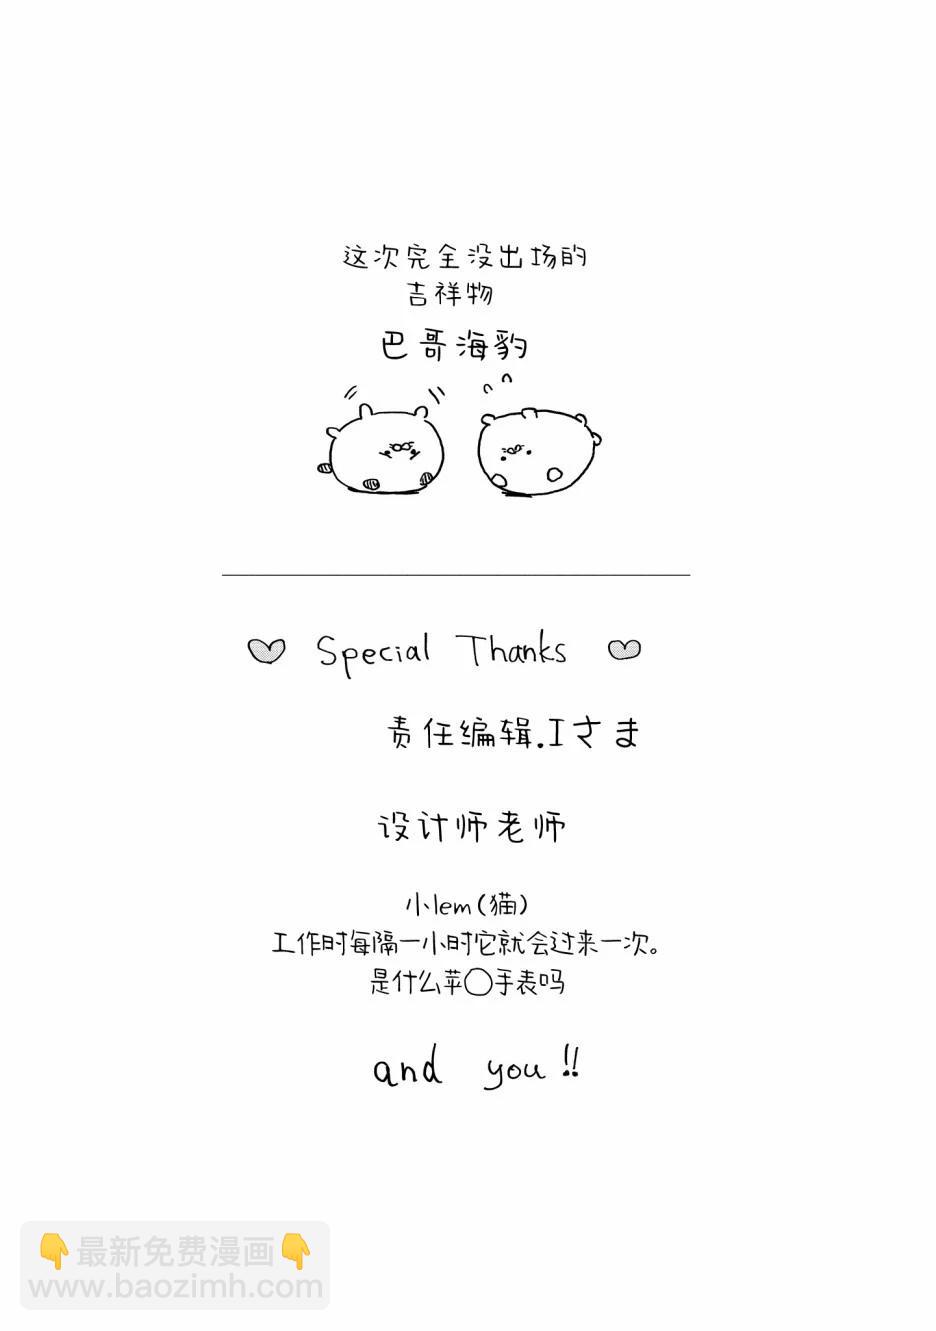 这次完全没出场的
吉祥物
巴哥海豹
Special Thanks
责任编辑.Iさま
设计师老师
小lem(猫)
工作时每隔一小时它就会过来一次。
是什么苹〇手表吗
and you!!
👇最新免费漫画👇
www.baozimh.com